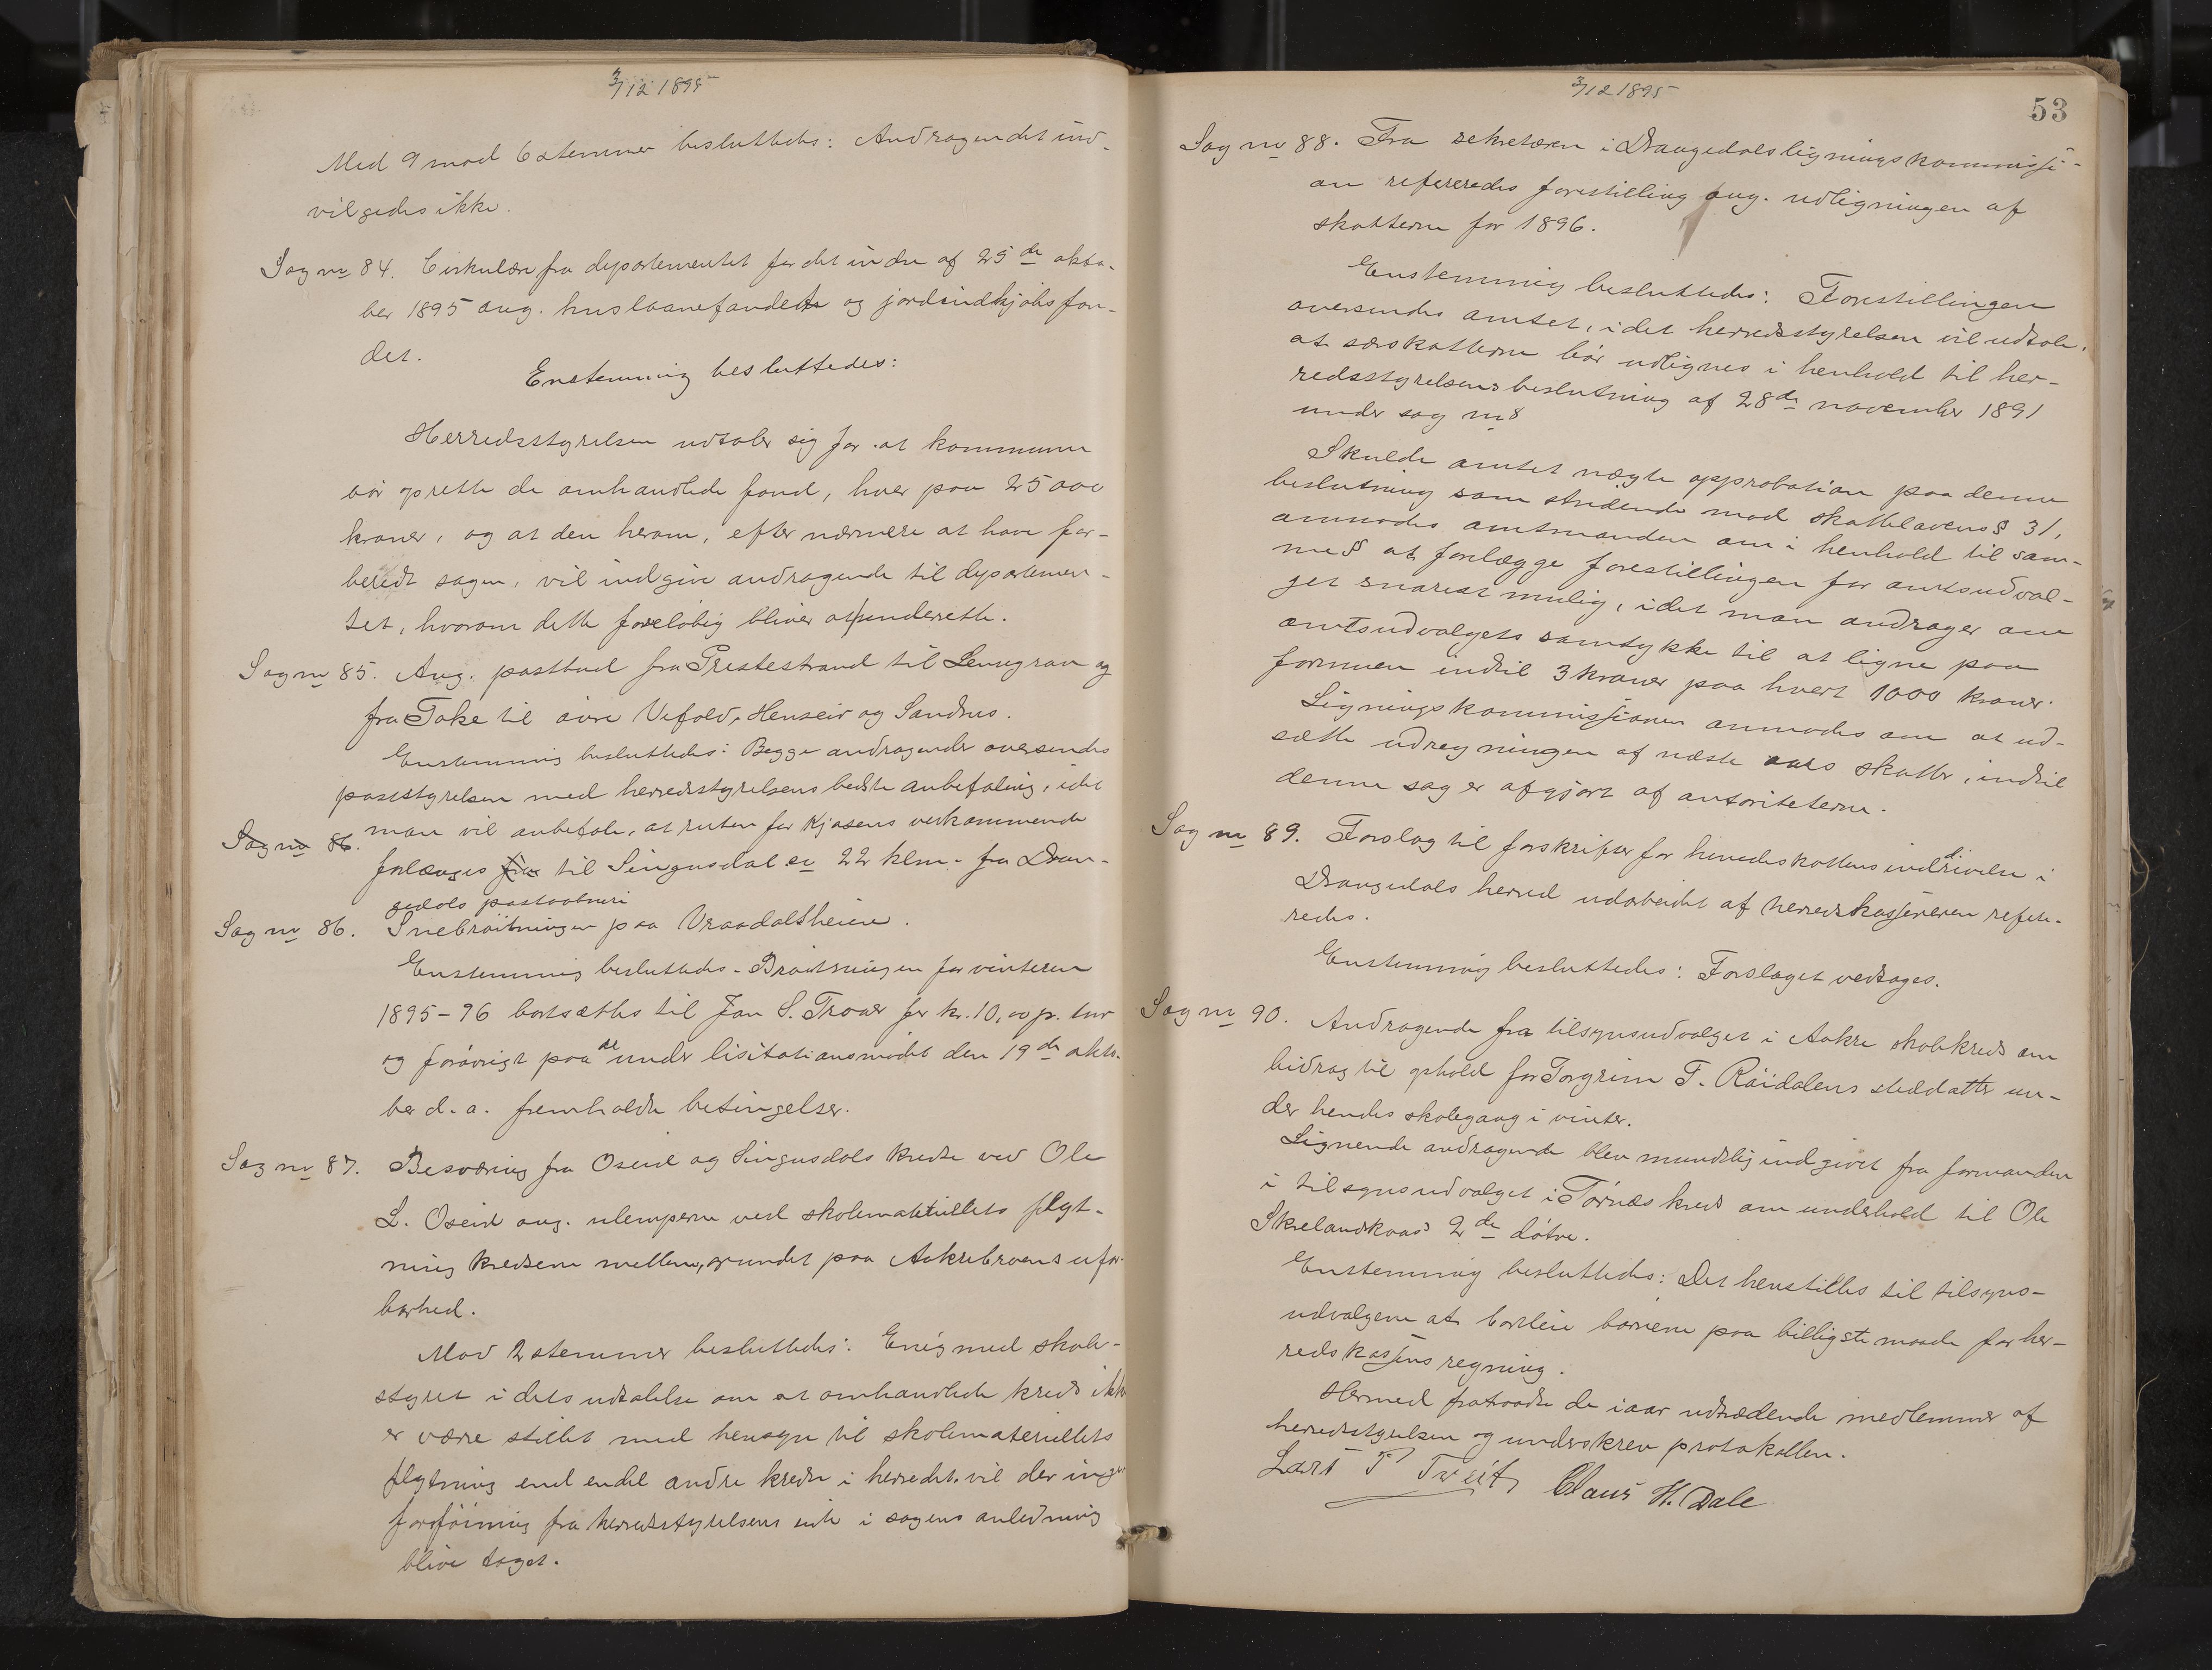 3/12 1895
Med 9 mod 6 stemmer besluttedes: Andragendet ind-
vilgedes ikke.
Sag no 84. Cirkulære fra departementet for det indre af 25de okto-
ber 1895 ang. huslaanefondets og jordindkjøbsfon-
det.
Enstemmig besluttedes:
Herredsstyrelsen udtaler sig for at kommunen
bør oprette de omhandlede fond, hver paa 25000
kroner, og at den herom, efter nærmere at have for-
beredt sagen, vil indgive andragende til departemen-
tet, hvorom dette foreløbig bliver at underrette.
Sag no 85. Ang. postbud fra Prestestrand til Lensgrav og
fra Toke til øvre Vefald, Henseid og Sandnes.
Enstemmig besluttedes: Begge andragender oversendes
poststyrelsen med herredsstyrelsens bedste anbefaling, idet
man vil anbefale, at ruten for Kjøsens vedkommende
Sag no 86.
forlænges fra til Singusdal ei 22 klm. fra Dran-
gedals postaabneri
Sag no 86. Snebrøitningen paa Vraadalsheien.
Enstemmig besluttedes. Brøitningen for vinteren
1895-96 bortsættes til Jan S. Troaer for kr. 10,00 p. tur
og forøvrigt paa de under lisitationsmødet den 19de okto-
ber d. a. fremholdte betingelser.
Sag no 87. Besværing fra Oseid og Singusdals kredse ved Ole
L. Oseid ang. ulemperne ved skolemateriellets flyt-
ning kredsene mellem, grundet paa Aakrebroens ufør-
barhed.
Mod 2 stemmer besluttedes: Enig med skole-
styret i dets udtalelse om at omhandlede kreds ikke
er værre stillet med hensyn til skolemateriellets
flytning end endel andre kredse i herredet, vil der ingen
forføining fra herredsstyrelsens side i sagens anledning
blive taget.
3/12 1895
53
Sag no 88. Fra sekretæren i Drangedals ligningskommissi-
on refereredes forestilling ang. udligningen af
skatterne for 1896.
Enstemmig besluttedes: Forestillingen
oversendes amtet, idet herredsstyrelsen vil udtale,
at særskatterne bør udlignes i henhold til her-
redsstyrelsens beslutning af 28de november 1891
under sag no 8
Skulde amtet nægte approbation paa denne
beslutning som stridende mod skattelovens § 31,
anmodes amtmanden om i henhold til sam-
me § at forelægge forestillingen for amtsudval-
get snarest mulig, idet man andrager om
amtsudvalgets samtykke til at ligne paa
formuen indtil 3 kroner paa hvert 1000 kroner.
Ligningskommissionen anmodes om at ud-
sætte udregningen af næste aars skatter, indtil
denne sag er afgjort af autoriteterne.
Sag no 89. Forslag til forskrifter for herredsskattens inddrivelse i
Drangedals herred udarbeidet af herredskassereren refere-
redes.
Enstemmig besluttedes: Forslaget vedtages.
Sag no 90. Andragende fra tilsynsudvalget i Aakre skolekreds om
bidrag til ophold for Torgrim T. Røidalens steddatter un-
der hendes skolegang i vinter.
Lignende andragende blev mundtlig indgivet fra formanden
i tilsynsudvalget i Tørnæs kreds om underhold til Ole
Skrelandkaas 2de døtre.
Enstemmig besluttedes: Det henstilles til tilsyns-
udvalgene at bortleie børnene paa billigste maade for her-
redskassens regning.
Hermed fratraadte de iaar udtrædende medlemmer af
herredsstyrelsen og underskrev protokollen.
Lars T Tveit Claus H. Dale